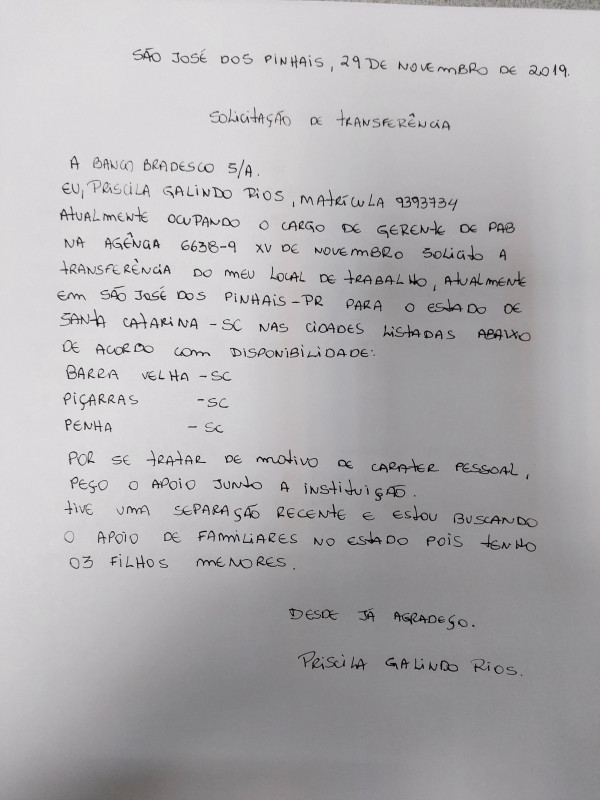 SÃO JOSÉ DOS PINHAIS, 29 DE NOVEMBRO DE 2019.
SOLICITAÇÃO DE TRANSFERÊNCIA
A BANCO BRADESCO S/A.
EU, PRISCILA GALINDO RIOS, MATRÍCULA 9393734
ATUALMENTE OCUPANDO O CARGO DE GERENTE DE PAB
NA AGÊNCIA 6638-9 XV DE NOVEMBRO SOLICITO A
TRANSFERÊNCIA DO MEU LOCAL DE TRABALHO, ATUALMENTE
EM SÃO JOSÉ DOS PINHAIS-PR PARA O ESTADO DE
SANTA CATARINA -SC NAS CIDADES LISTADAS ABAIXO
DE ACORDO COM DISPONIBILIDADE:
BARRA VELHA -SC
PIÇARRAS -SC
PENHA - SC
POR SE TRATAR DE MOTIVO DE CARATER PESSOAL,
PEÇO O APOIO JUNTO A INSTITUIÇÃO.
TIVE UMA SEPARAÇÃO RECENTE E ESTOU BUSCANDO
O APOIO DE FAMILIARES NO ESTADO POIS TENHO
03 FILHOS MENORES.
DESDE JÁ AGRADEÇO.
PRISCILA GALINDO RIOS.